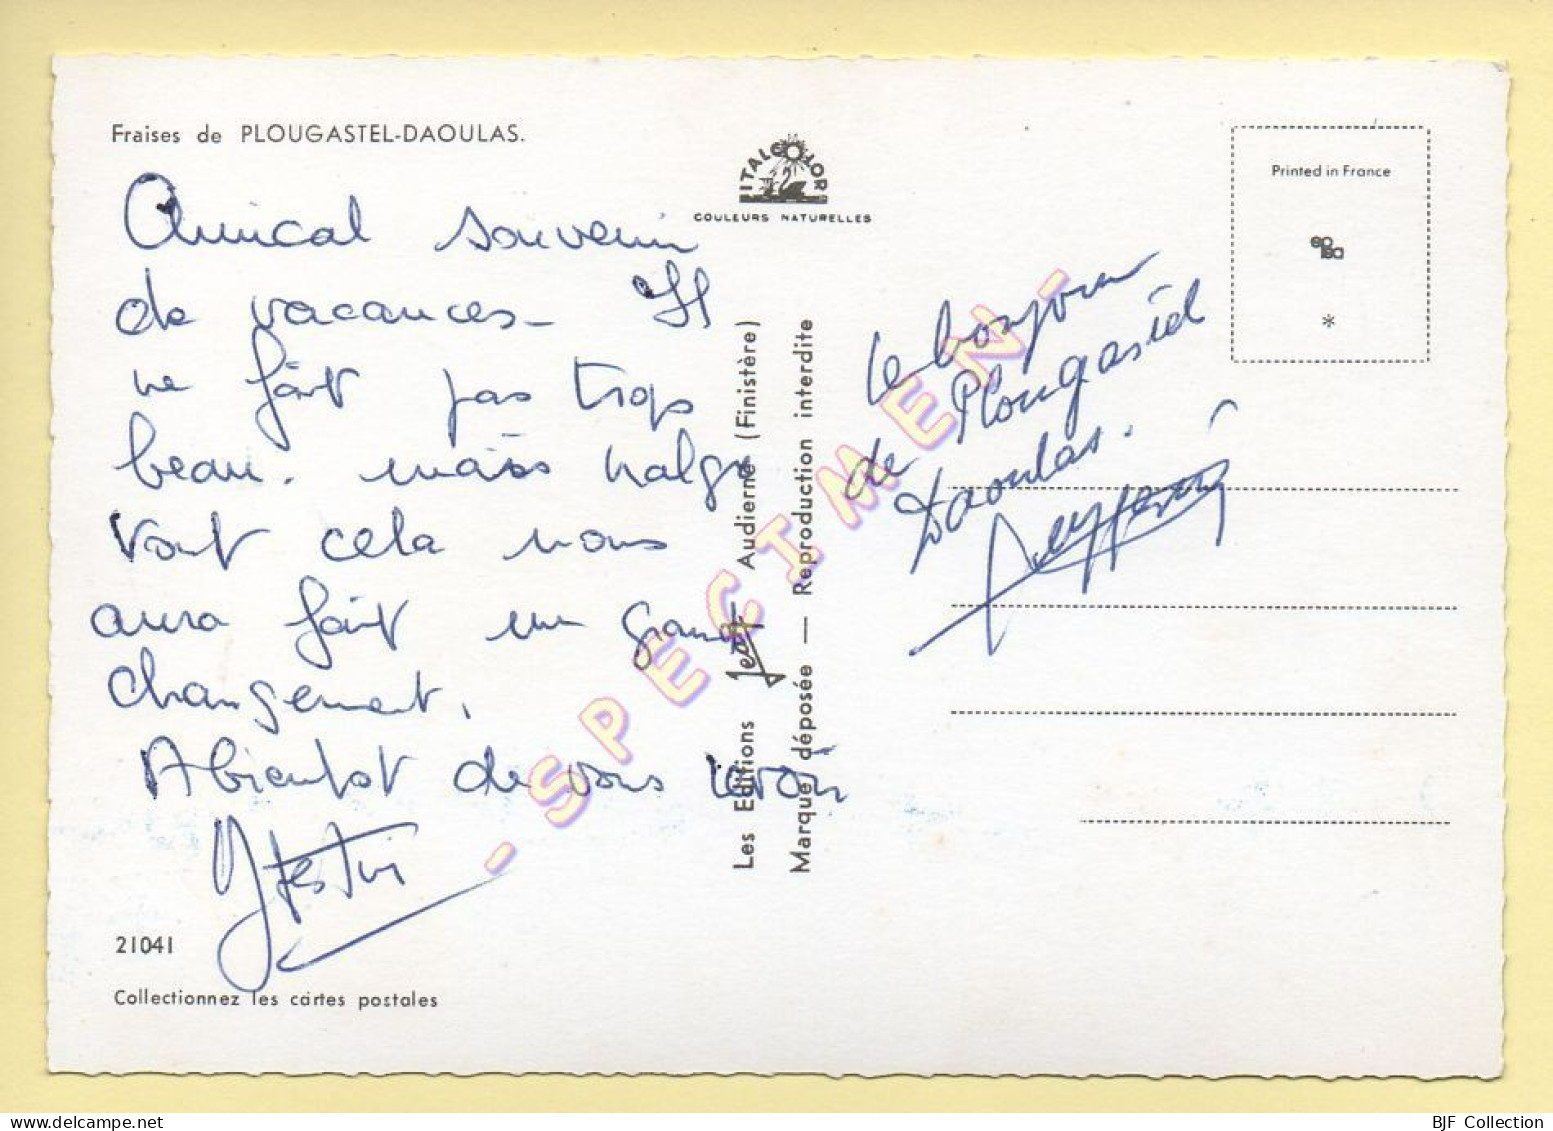 Fraises de PLOUGASTEL-DAOULAS.
Amical souvenir
de vacances_ Il
ne fait pas trop
beau. mais malgré
tout cela nous
aura fait un grand
changement.
A bientot de vous revoir
21041
Collectionnez les cartes postales
ITALCOLOR
COULEURS NATURELLES
Les Editions Jean Audierne (Finistère)
Marque déposée — Reproduction interdite
- SPECIMEN -
Le bonjour
de Plougastel
Daoulas.
Printed in France
*
BJF Collection